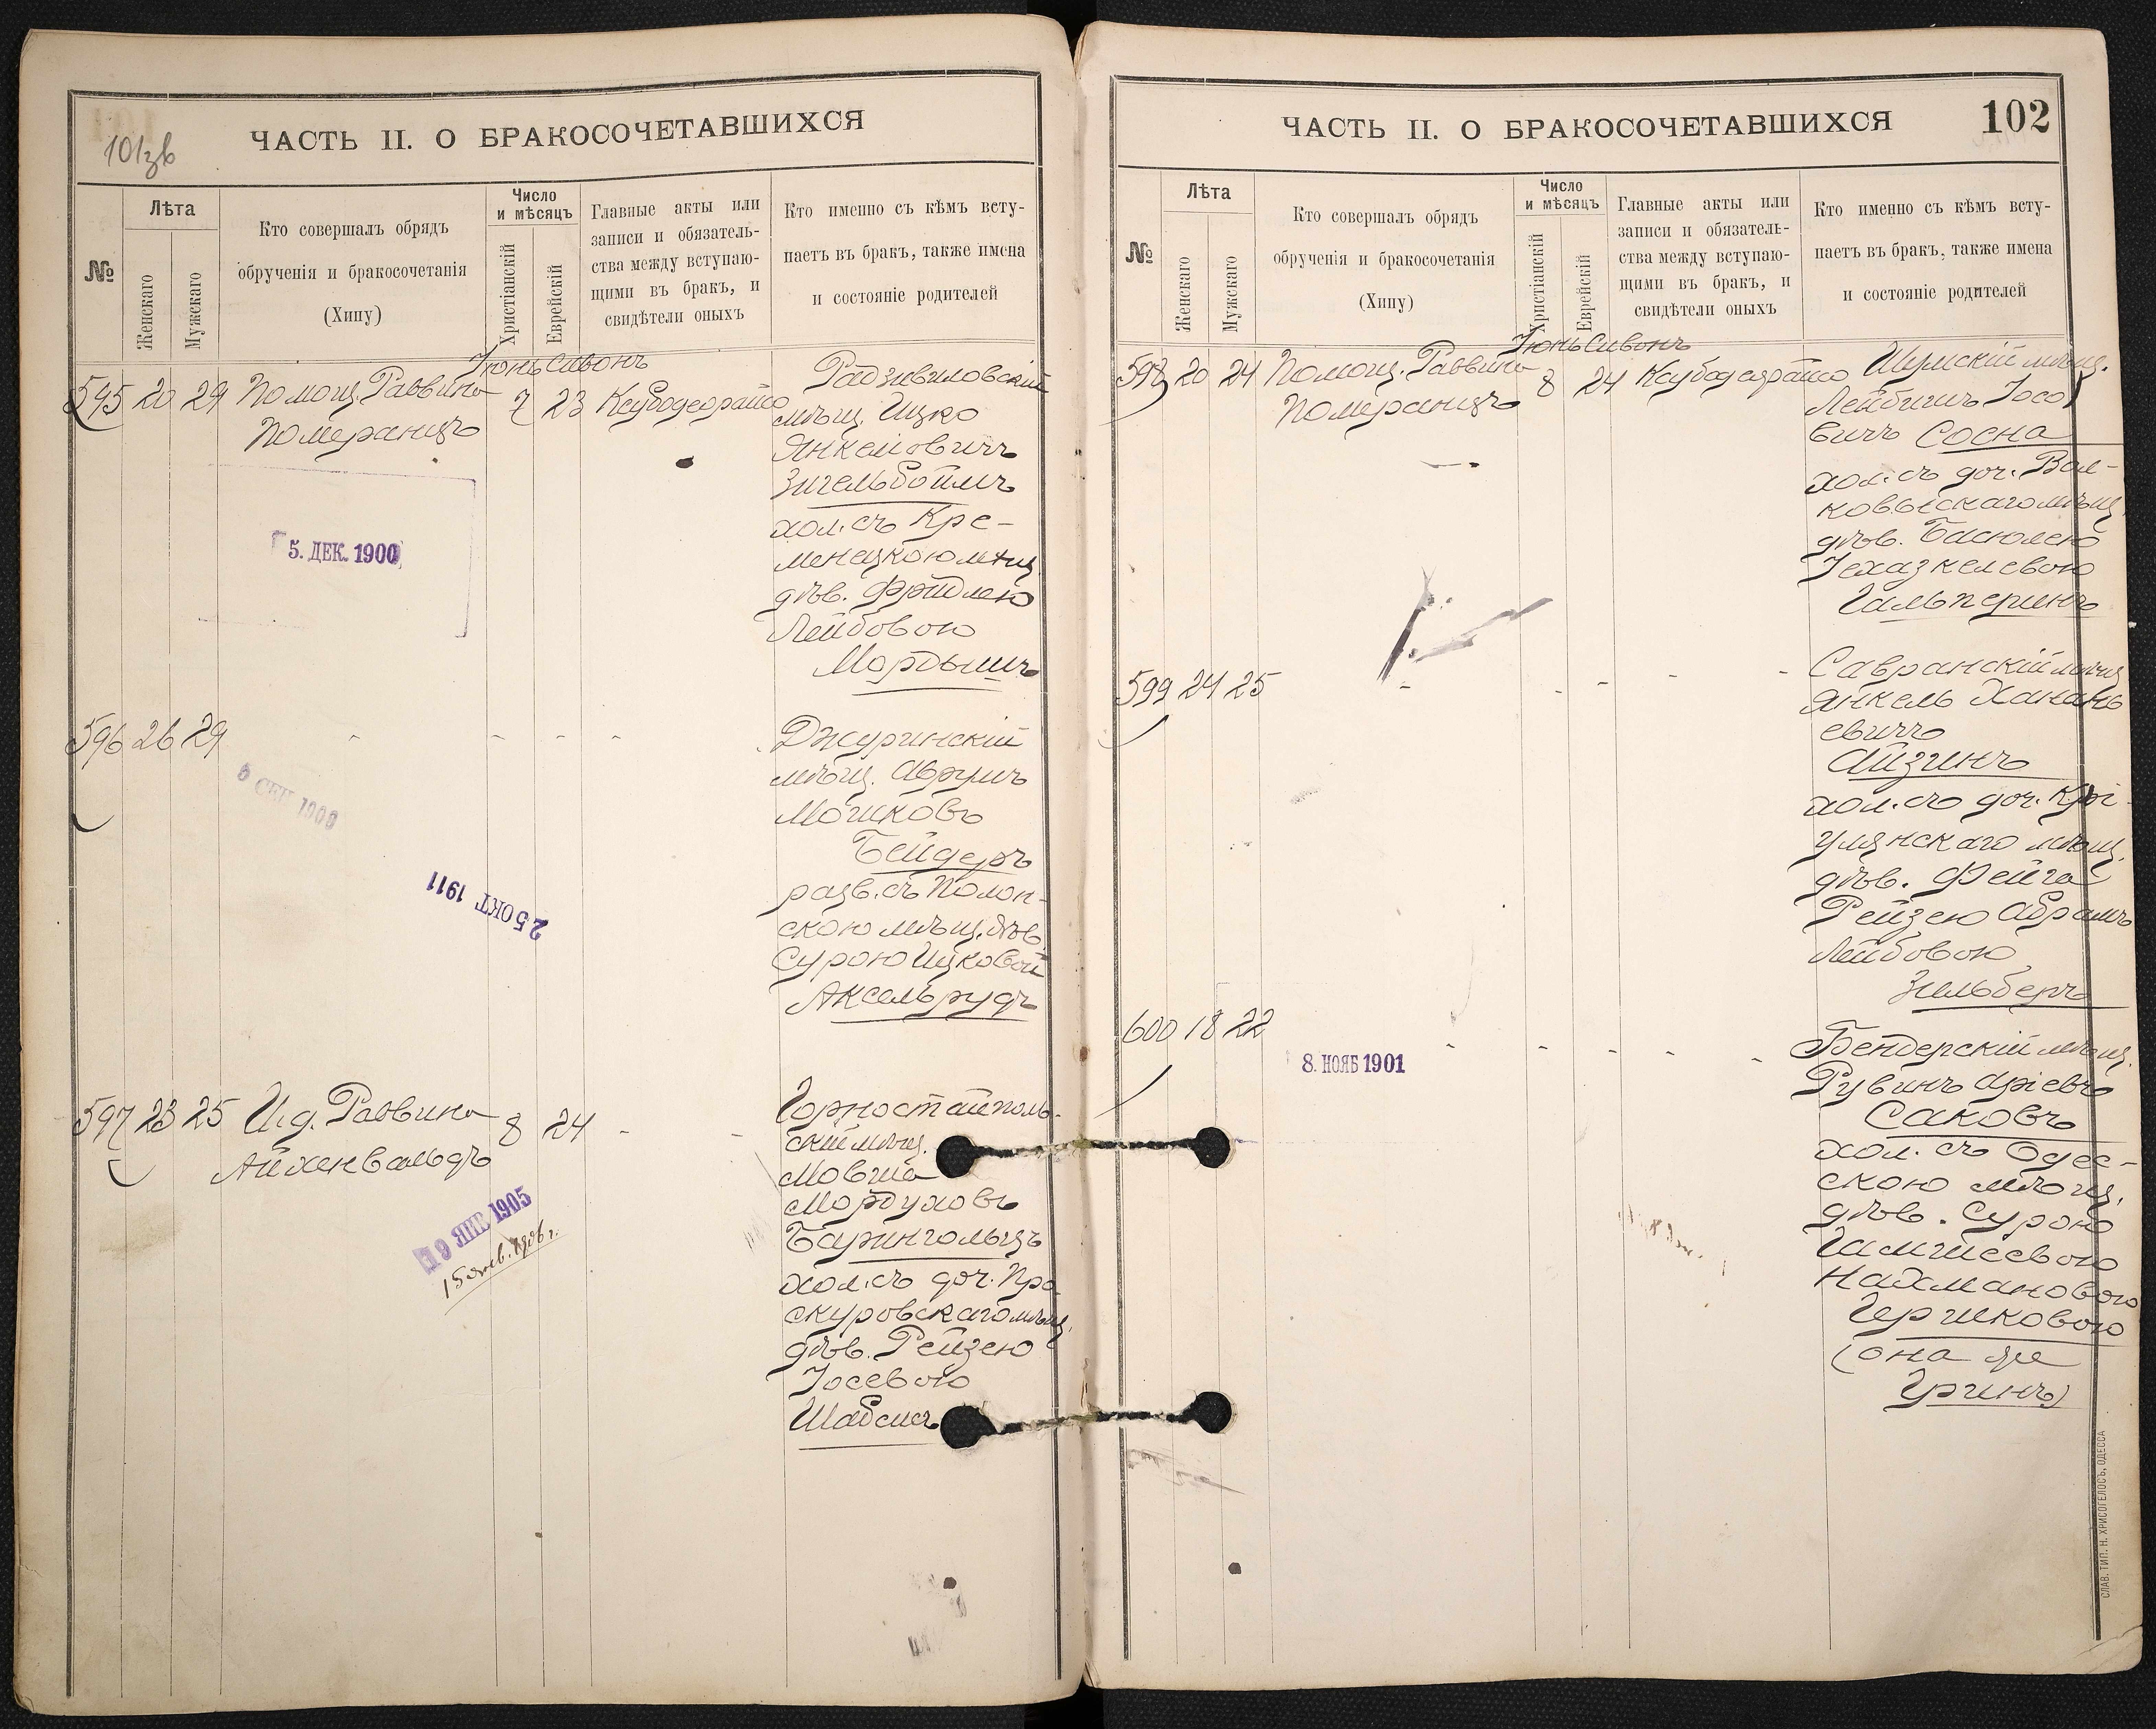 101зв
ЧАСТЬ II. О БРАКОСОЧЕТАВШИХСЯ
№
Лѣта
Женскаго
Мужскаго
Кто совершалъ обрядъ
обрученія и бракосочетанія
(Хипу)
Число
и мѣсяцъ
Христіанскій
Еврейскій
Главные акты или
записи и обязатель-
ства между вступаю-
щими въ бракъ, и
свидѣтели оныхъ
Кто именно съ кѣмъ всту-
паетъ въ бракъ, также имена
и состояніе родителей
Іюнь Сивонъ
595 20 29 Помощ. Раввина 7 23 Радзивиловскій
Померанцъ мѣщ. Ицко
Янкелевичъ
Зигельбоймъ
хол. съ Кре-
менецкою мѣщ.
дѣв. Фрѣйдлею
Лейбовою
Мордышъ
5. ДЕК. 1900
596 26 29 - - - - Джуринскій
мѣщ. Аврумъ
Мошковъ
Бейдеръ
разв. съ Полон-
скою мѣщ. дѣв.
Сурою Ицковой
Аксельрудъ
6 СЕН 1900
25 ОКТ 1911
597 23 25 И.д. Раввина 8 24 - - Горностайполь-
Айхенвальдъ скій мѣщ.
Мовша
Мордуховъ
Барингольцъ
хол. съ доч. Про-
скуровскаго мѣщ.
дѣв. Рейзею
Іосевою
Шабсисъ
19 ЯНВ 1905
15 янв. 1906 г.
ЧАСТЬ II. О БРАКОСОЧЕТАВШИХСЯ
102
№
Лѣта
Женскаго
Мужскаго
Кто совершалъ обрядъ
обрученія и бракосочетанія
(Хипу)
Число
и мѣсяцъ
Христіанскій
Еврейскій
Главные акты или
записи и обязатель-
ства между вступаю-
щими въ бракъ, и
свидѣтели оныхъ
Кто именно съ кѣмъ всту-
паетъ въ бракъ, также имена
и состояніе родителей
Іюнь Сивонъ
598 20 24 Помощ. Раввина 8 24 Шумскій мѣщ.
Померанцъ Лейбишъ Іосо
вичъ Сосна
хол. съ доч. Вол-
ковыскаго мѣщ.
дѣв. Басюлею
Іехазкелевою
Гальперинъ
599 24 25 - - - - - Савранскій мѣщ.
Янкель Ханань
евичъ
Айзинъ
хол. съ доч. Крі-
улянскаго мѣщ.
дѣв. Фейга
Рейзею Абрамъ
Лейбовою
Зильберъ
600 18 22 - - - - - Бендерскій мѣщ.
Рувинъ Аріевъ
Саковъ
хол. съ Одес-
скою мѣщ.
дѣв. Сурою
Нахмановою
Гершковою
(она же
Гринъ)
8. НОЯБ 1901
СЛАВ. ТИП. Н. ХРИСОГЕЛОСЪ, ОДЕССА